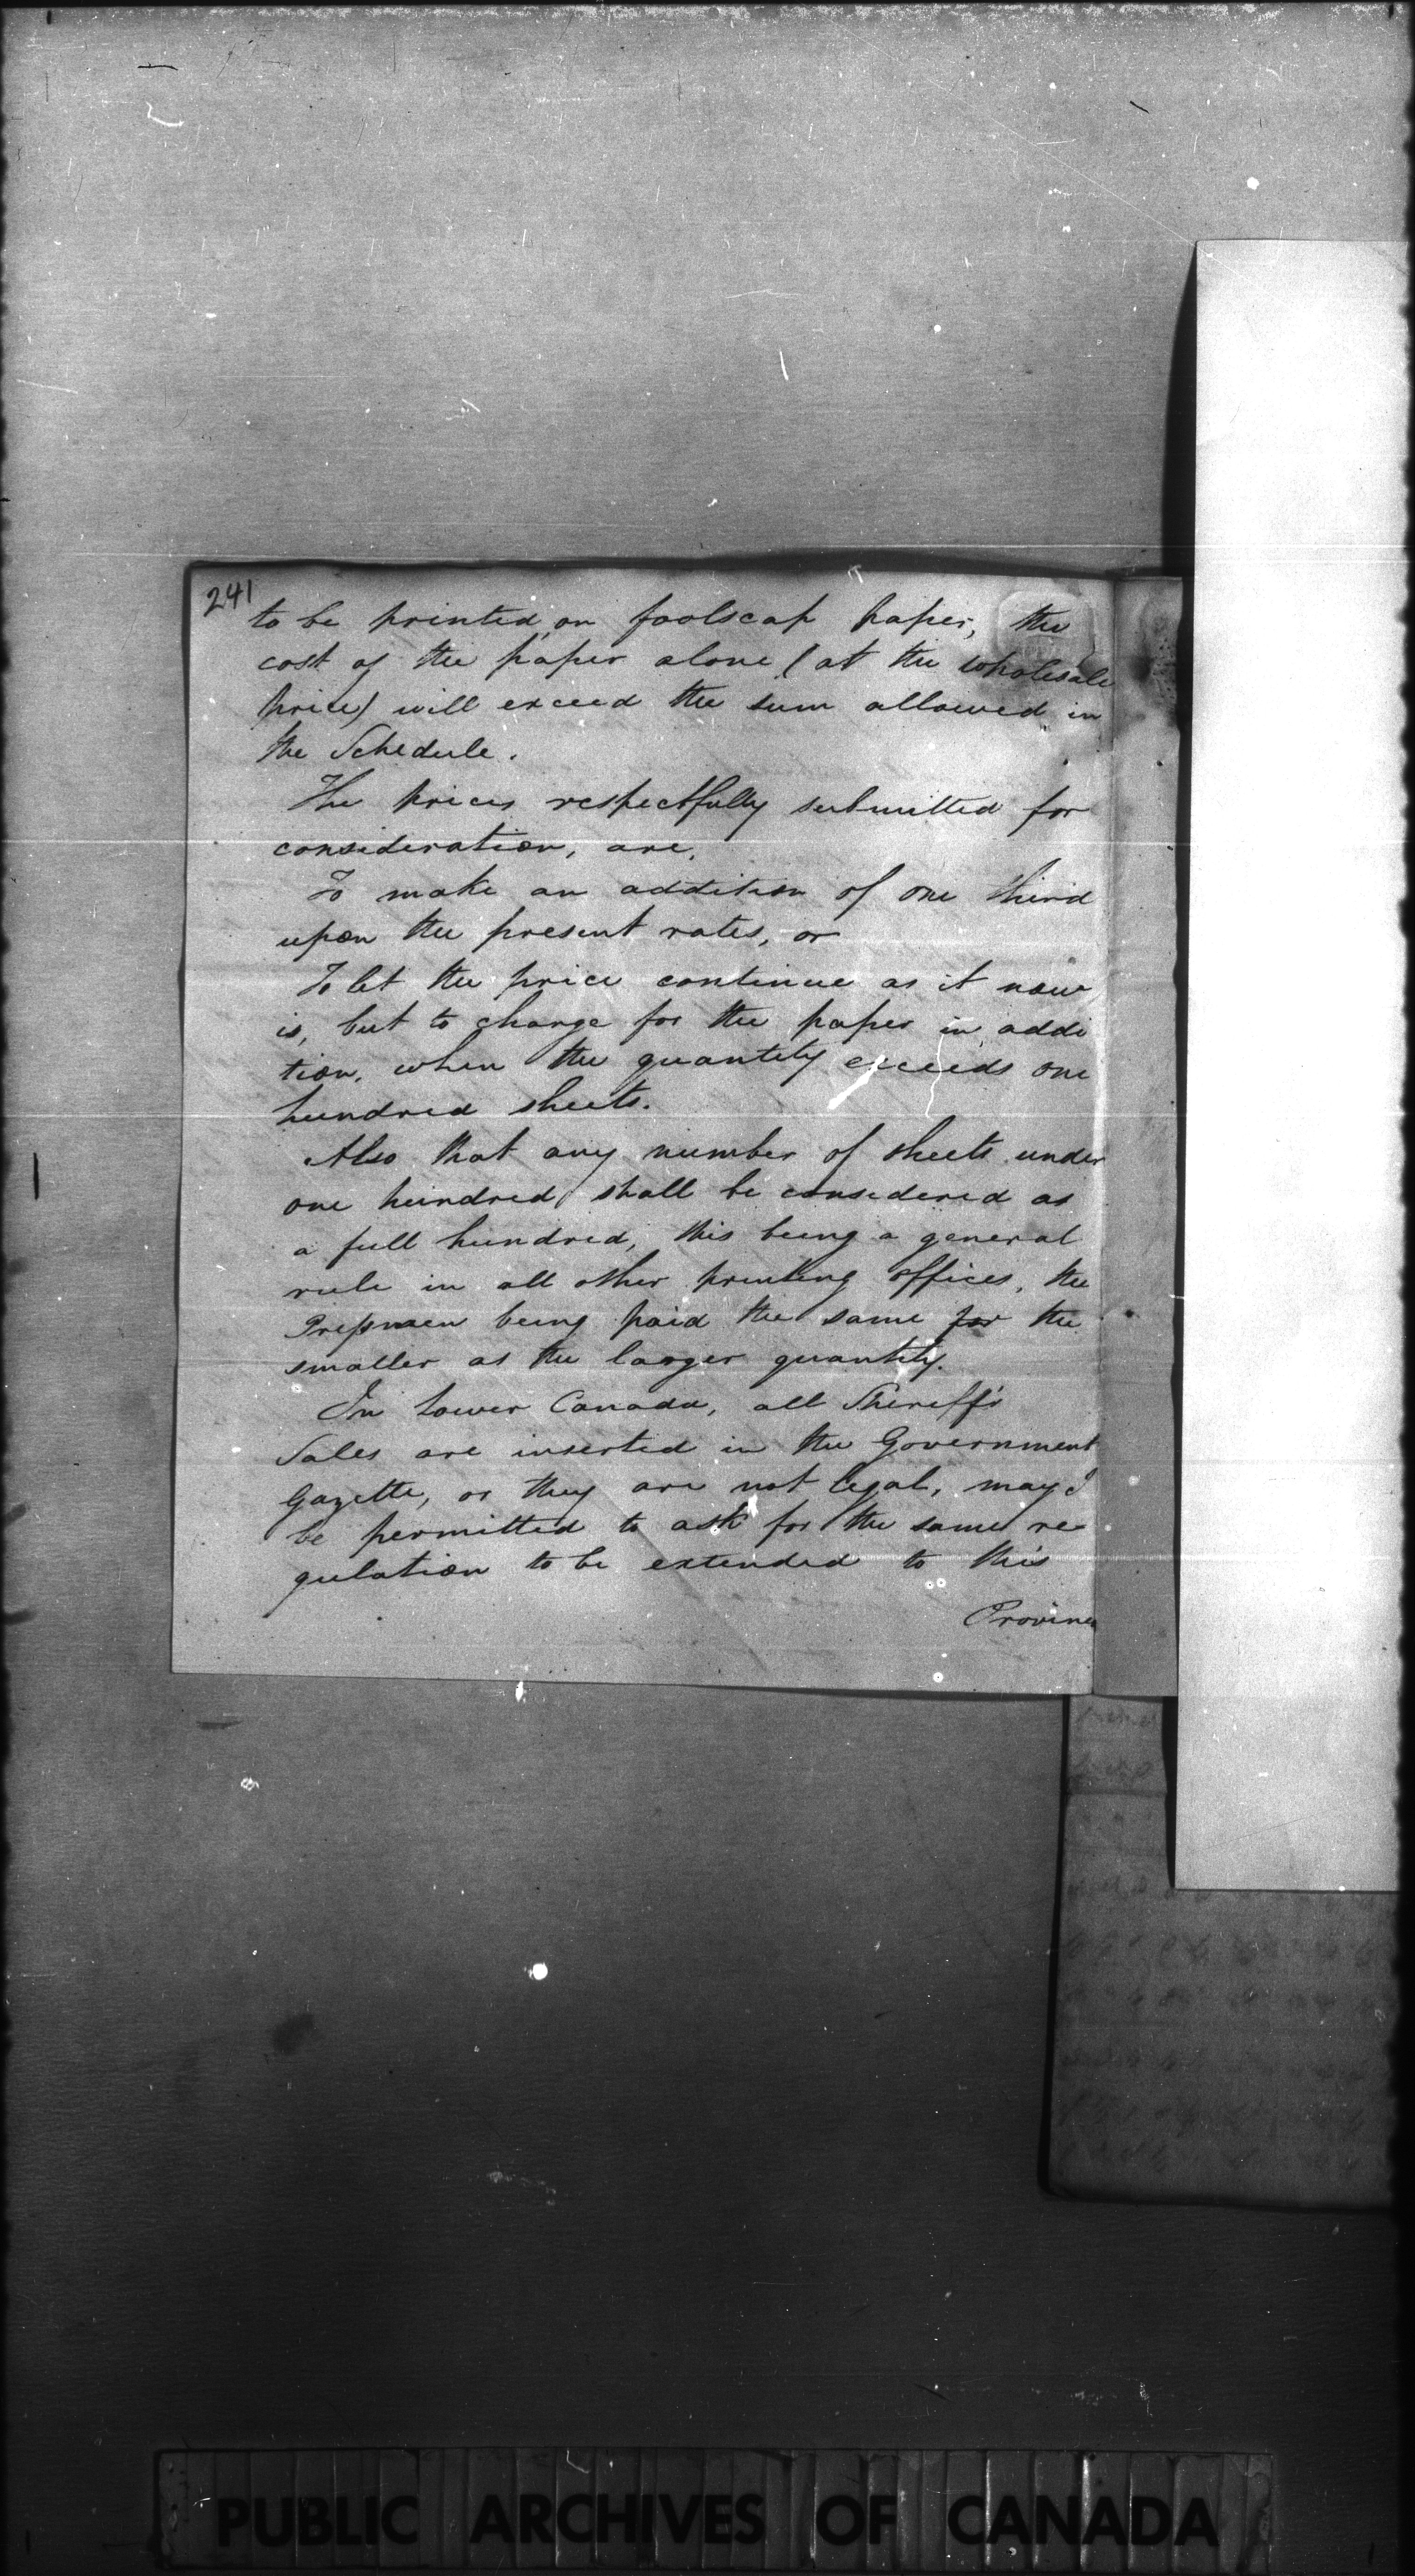 241
to be printed on foolscap paper, the
cost of the paper alone (at the wholesale
price) will exceed the sum allowed in
the Schedule.
The prices respectfully submitted for
consideration, are,
To make an addition of one third
upon the present rates, or
To let the price continue as it now
is, but to charge for the paper in addi
tion, when the quantity exceeds one
hundred sheets.
Also that any number of sheets under
one hundred shall be considered as
a full hundred, this being a general
rule in all other printing offices, the
Pressmen being paid the same for the
smaller as the larger quantity.
In Lower Canada, all Sheriff's
Sales are inserted in the Government
Gazette, or they are not legal, may I
be permitted to ask for the same re
gulation to be extended to this
Province
PUBLIC ARCHIVES OF CANADA